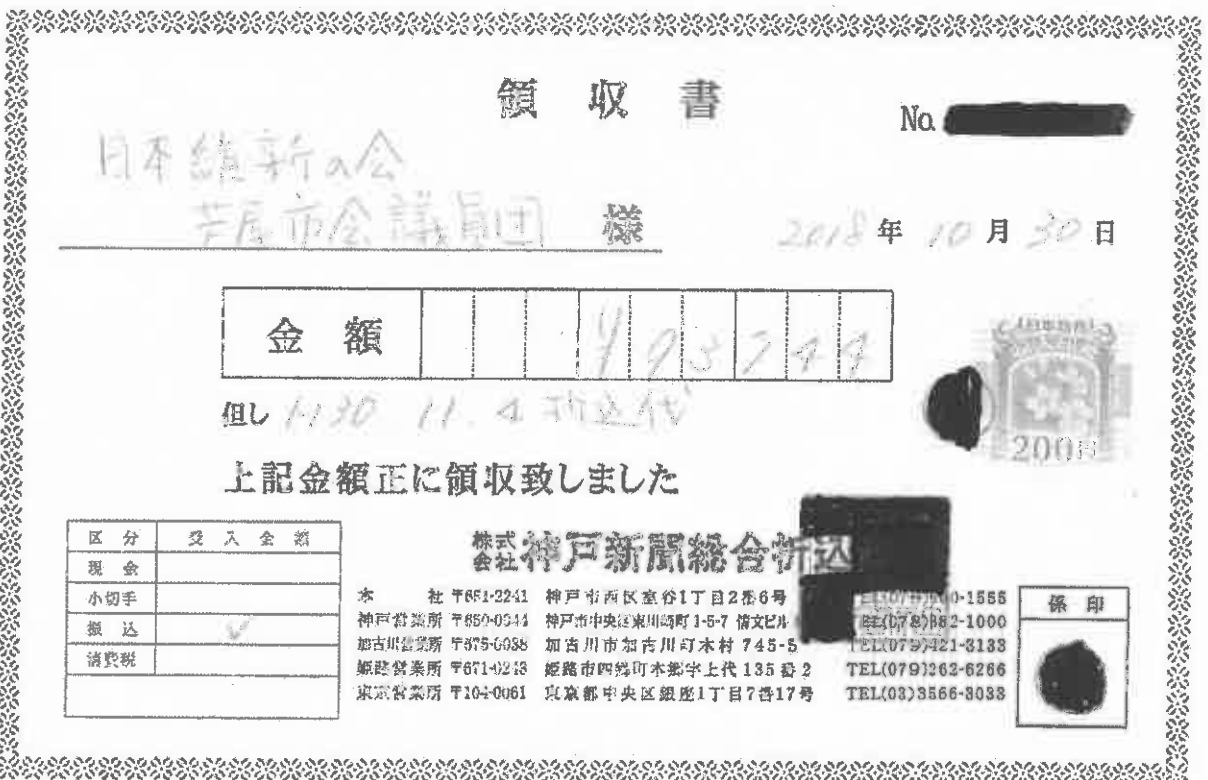 領収書
No.
日本維新の会
芦屋市会議員団 様
2018年 10月 30日
金額 ¥95744
但し H30 11.4 折込代
上記金額正に領収致しました
200円
区分 受入金額
現金
小切手
振込 ✓
消費税
株式会社 神戸新聞総合折込
本社 〒651-2241 神戸市西区室谷1丁目2番6号
神戸営業所 〒650-0044 神戸市中央区東川崎町1-5-7 情文ビル TEL(078)362-1000
加古川営業所 〒675-0038 加古川市加古川町木村745-5 TEL(079)421-3133
姫路営業所 〒671-0218 姫路市四郷町本郷字上代135番2 TEL(079)262-6266
東京営業所 〒104-0061 東京都中央区銀座1丁目7番17号 TEL(03)3566-3033
係印